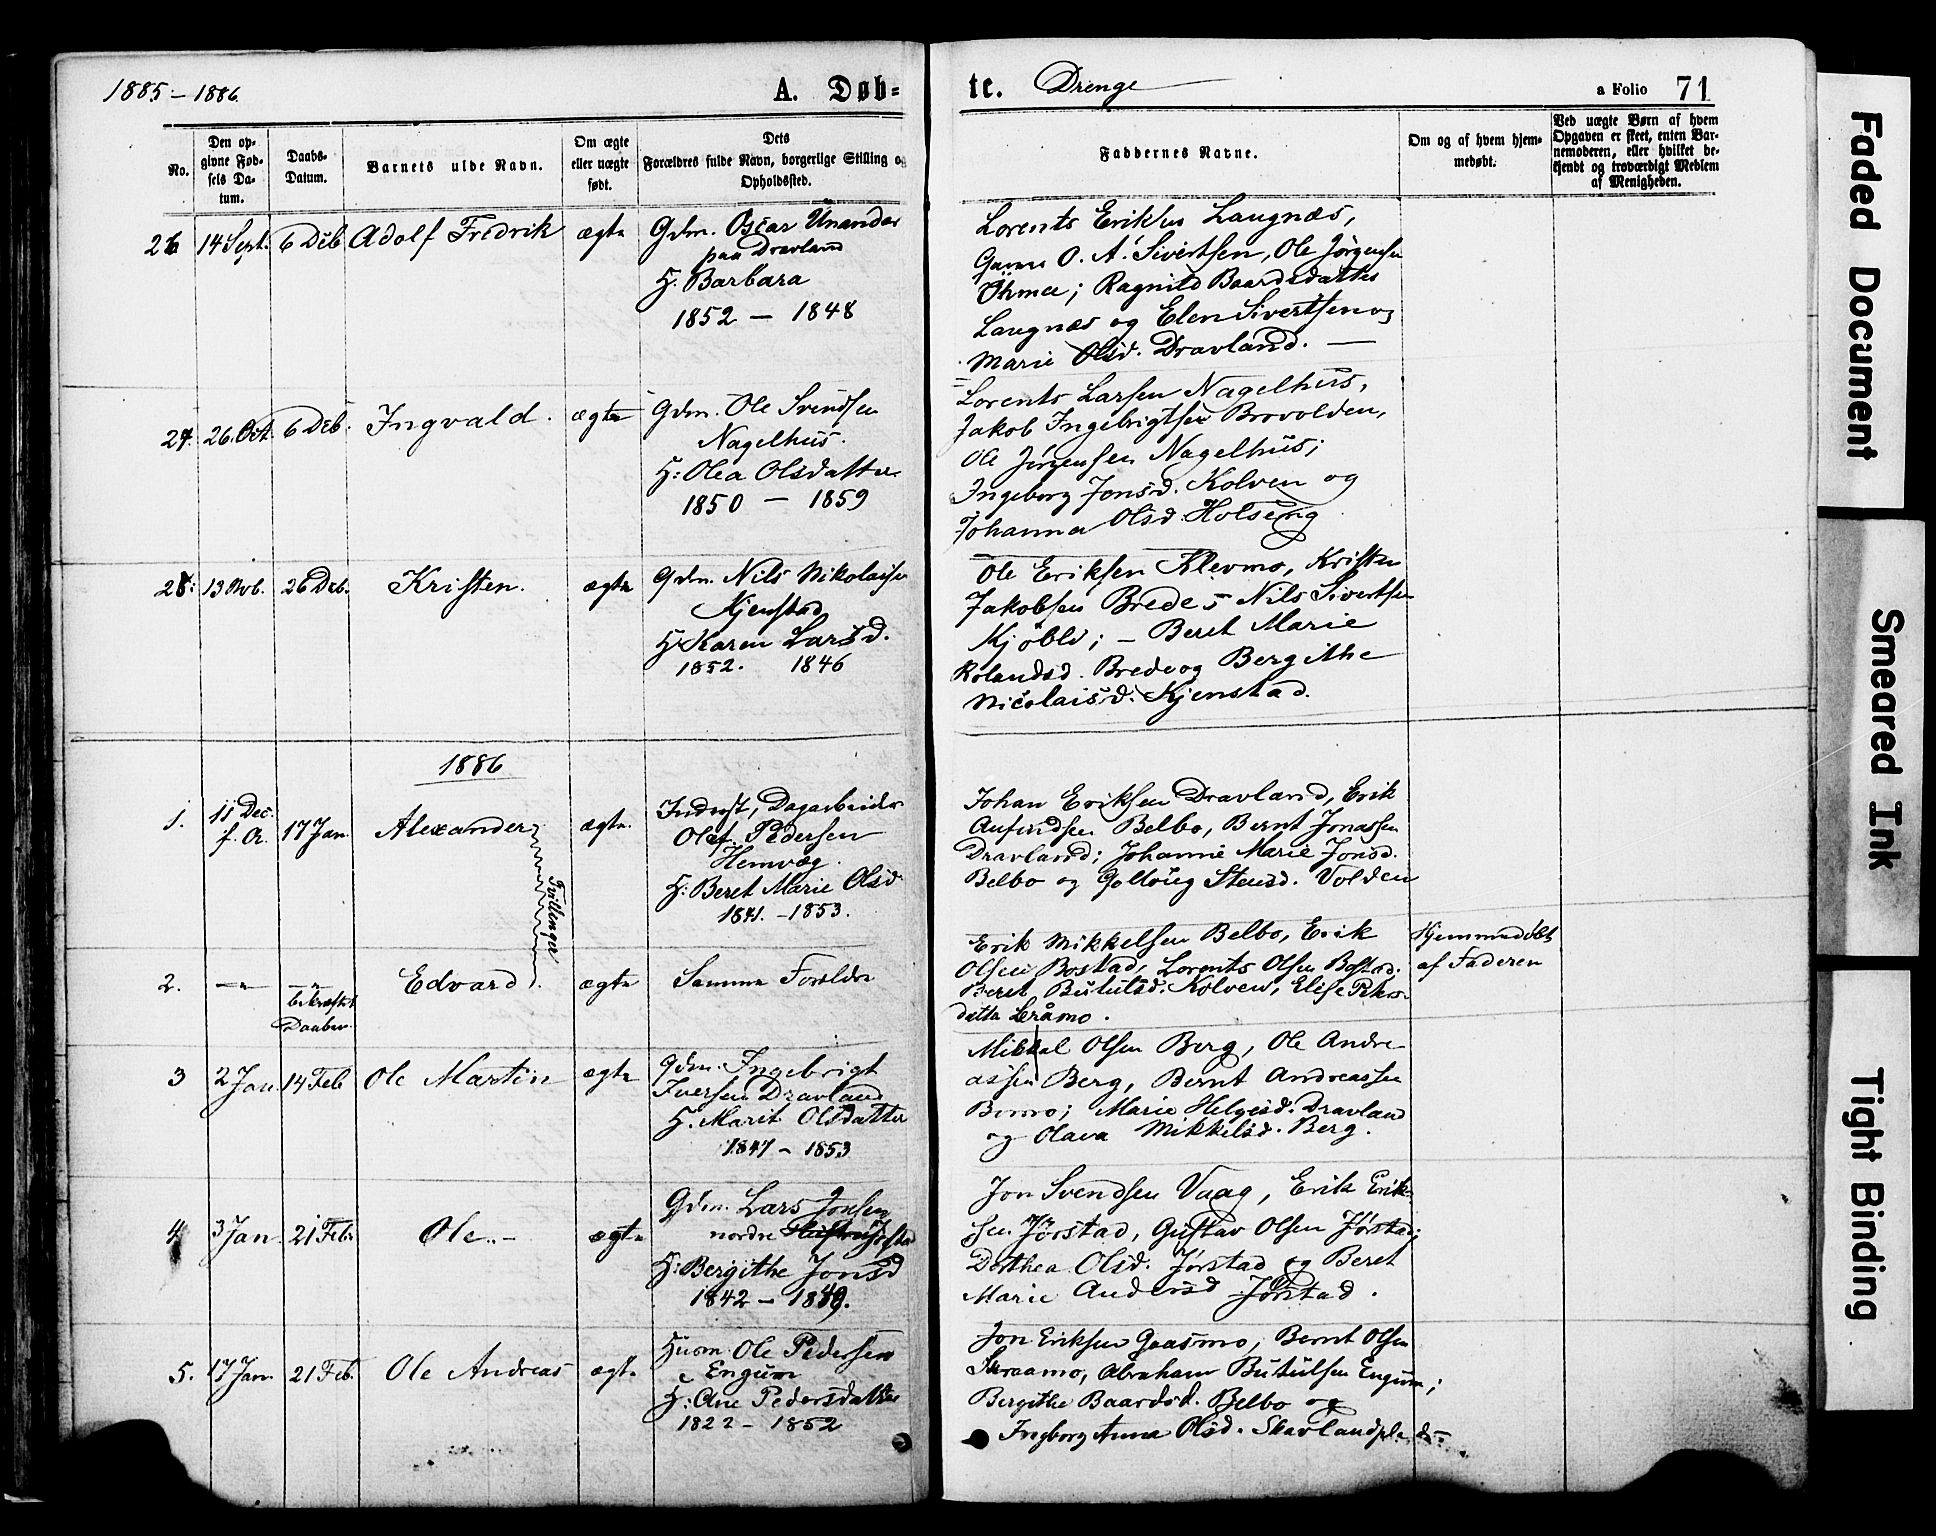 1885 - 1886.
A. Døb=
te. Drenge
a Folio 71
No.
Den op-
givne Fød-
sels Da-
tum.
Daabs-
Datum.
Barnets fulde Navn.
Om ægte
eller uægte
født.
Dets
Forældres fulde Navn, borgerlige Stilling og
Opholdssted.
Faddernes Navne.
Om og af hvem hjem-
medøbt.
Ved uægte Børn af hvem
Opgaven er skeet, enten Bar-
nemoderen, eller hvilket be-
kjendt og troværdigt Medlem
af Menigheden.
26 14 Sept. 6 Deb Adolf Fredrik ægte
Gdm. Oscar Unander
paa Dravland
H. Barbara
1852 - 1848
Lorents Eriksen Langnæs,
O. A. Sivertsen, Ole Jørgensen
; Ragnild Baardsdatter
Langnæs og Elen Sivertsen og
Marie Olsd. Dravland. -
27. 26. Oct. 6 Deb. Ingvald. ægte
Gdm. Ole Svendsen
Nagelhus.
H: Olea Olsdatter
1850 - 1859
Lorents Larsen Nagelhus,
Jakob Ingebrigtsen Brovolden,
Ole Jørgensen Nagelhus;
Ingeborg Jonsd. Kolven og
Johanna Olsd. Holseng
28. 13 Nvb. 26 Deb. Kristen. ægte
Gdm. Nils Nikolaisen
Kjenstad
H. Karen Larsd.
1852. 1846
Ole Eriksen Klevmo, Kristen
Jakobsen Brede, Nils Sivertsen
; - Beret Marie
Rolandsd. Brede og Bergithe
Nicolaisd. Kjenstad.
1886
1. 11 Dec. f. A. 17 Jan Alexander ægte.
Inderst, Dagarbeider
Olaf Pedersen
Hemvæg.
H: Beret Marie Olsd
1841. - 1853.
Johan Eriksen Dravland, Erik
Anfindsen Belbo, Bernt Jonassen
Dravland; Johanne Marie Jonsd.
Belbo og Goldoug Stensd. Volden
Tvillinger
2. -"- -"- Edvard. ægte
bekræftet
Daaben.
Samme Foreldre
Erik Mikkelsen Belbo, Erik
Olsen Bostad, Lorents Olsen Bostad.
Beret Bututsd. Kolven, Elise Peters-
datter Leråmo.
Hjemmedøbt
af Faderen
3 2 Jan. 14 Feb Ole Martin ægte
Gdm. Ingebrigt
Iversen Dravland
H. Marit Olsdatter
1847 - 1853
Mikkal Olsen Berg, Ole Andre-
assen Berg, Bernt Andreassen
; Marie Helgesd. Dravland
og Olava Mikkelsd. Berg.
4. 3 Jan. 21 Feb. Ole. - ægte
Gdm. Lars Jonsen
nordre Jørstad
H: Bergithe Jonsd
1842 - 1849.
Jon Svendsen Vaag, Erik Erik-
sen Jørstad, Gustav Olsen Jørstad;
Dorthea Olsd. Jørstad og Beret
Marie Andersd Jørstad.
5. 17 Jan. 21 Feb. Ole Andreas ægte
Husm. Ole Pedersen
Engum
H: Ane Pedersdatter
1822 - 1852
Jon Eriksen Gaasmo, Bernt Olsen
, Abraham Bututsen Engum;
Bergithe Baardsd. Belbo og
Ingborg Anna Olsd. Skavlandpladsen
Faded Document
Smeared Ink
Tight Binding